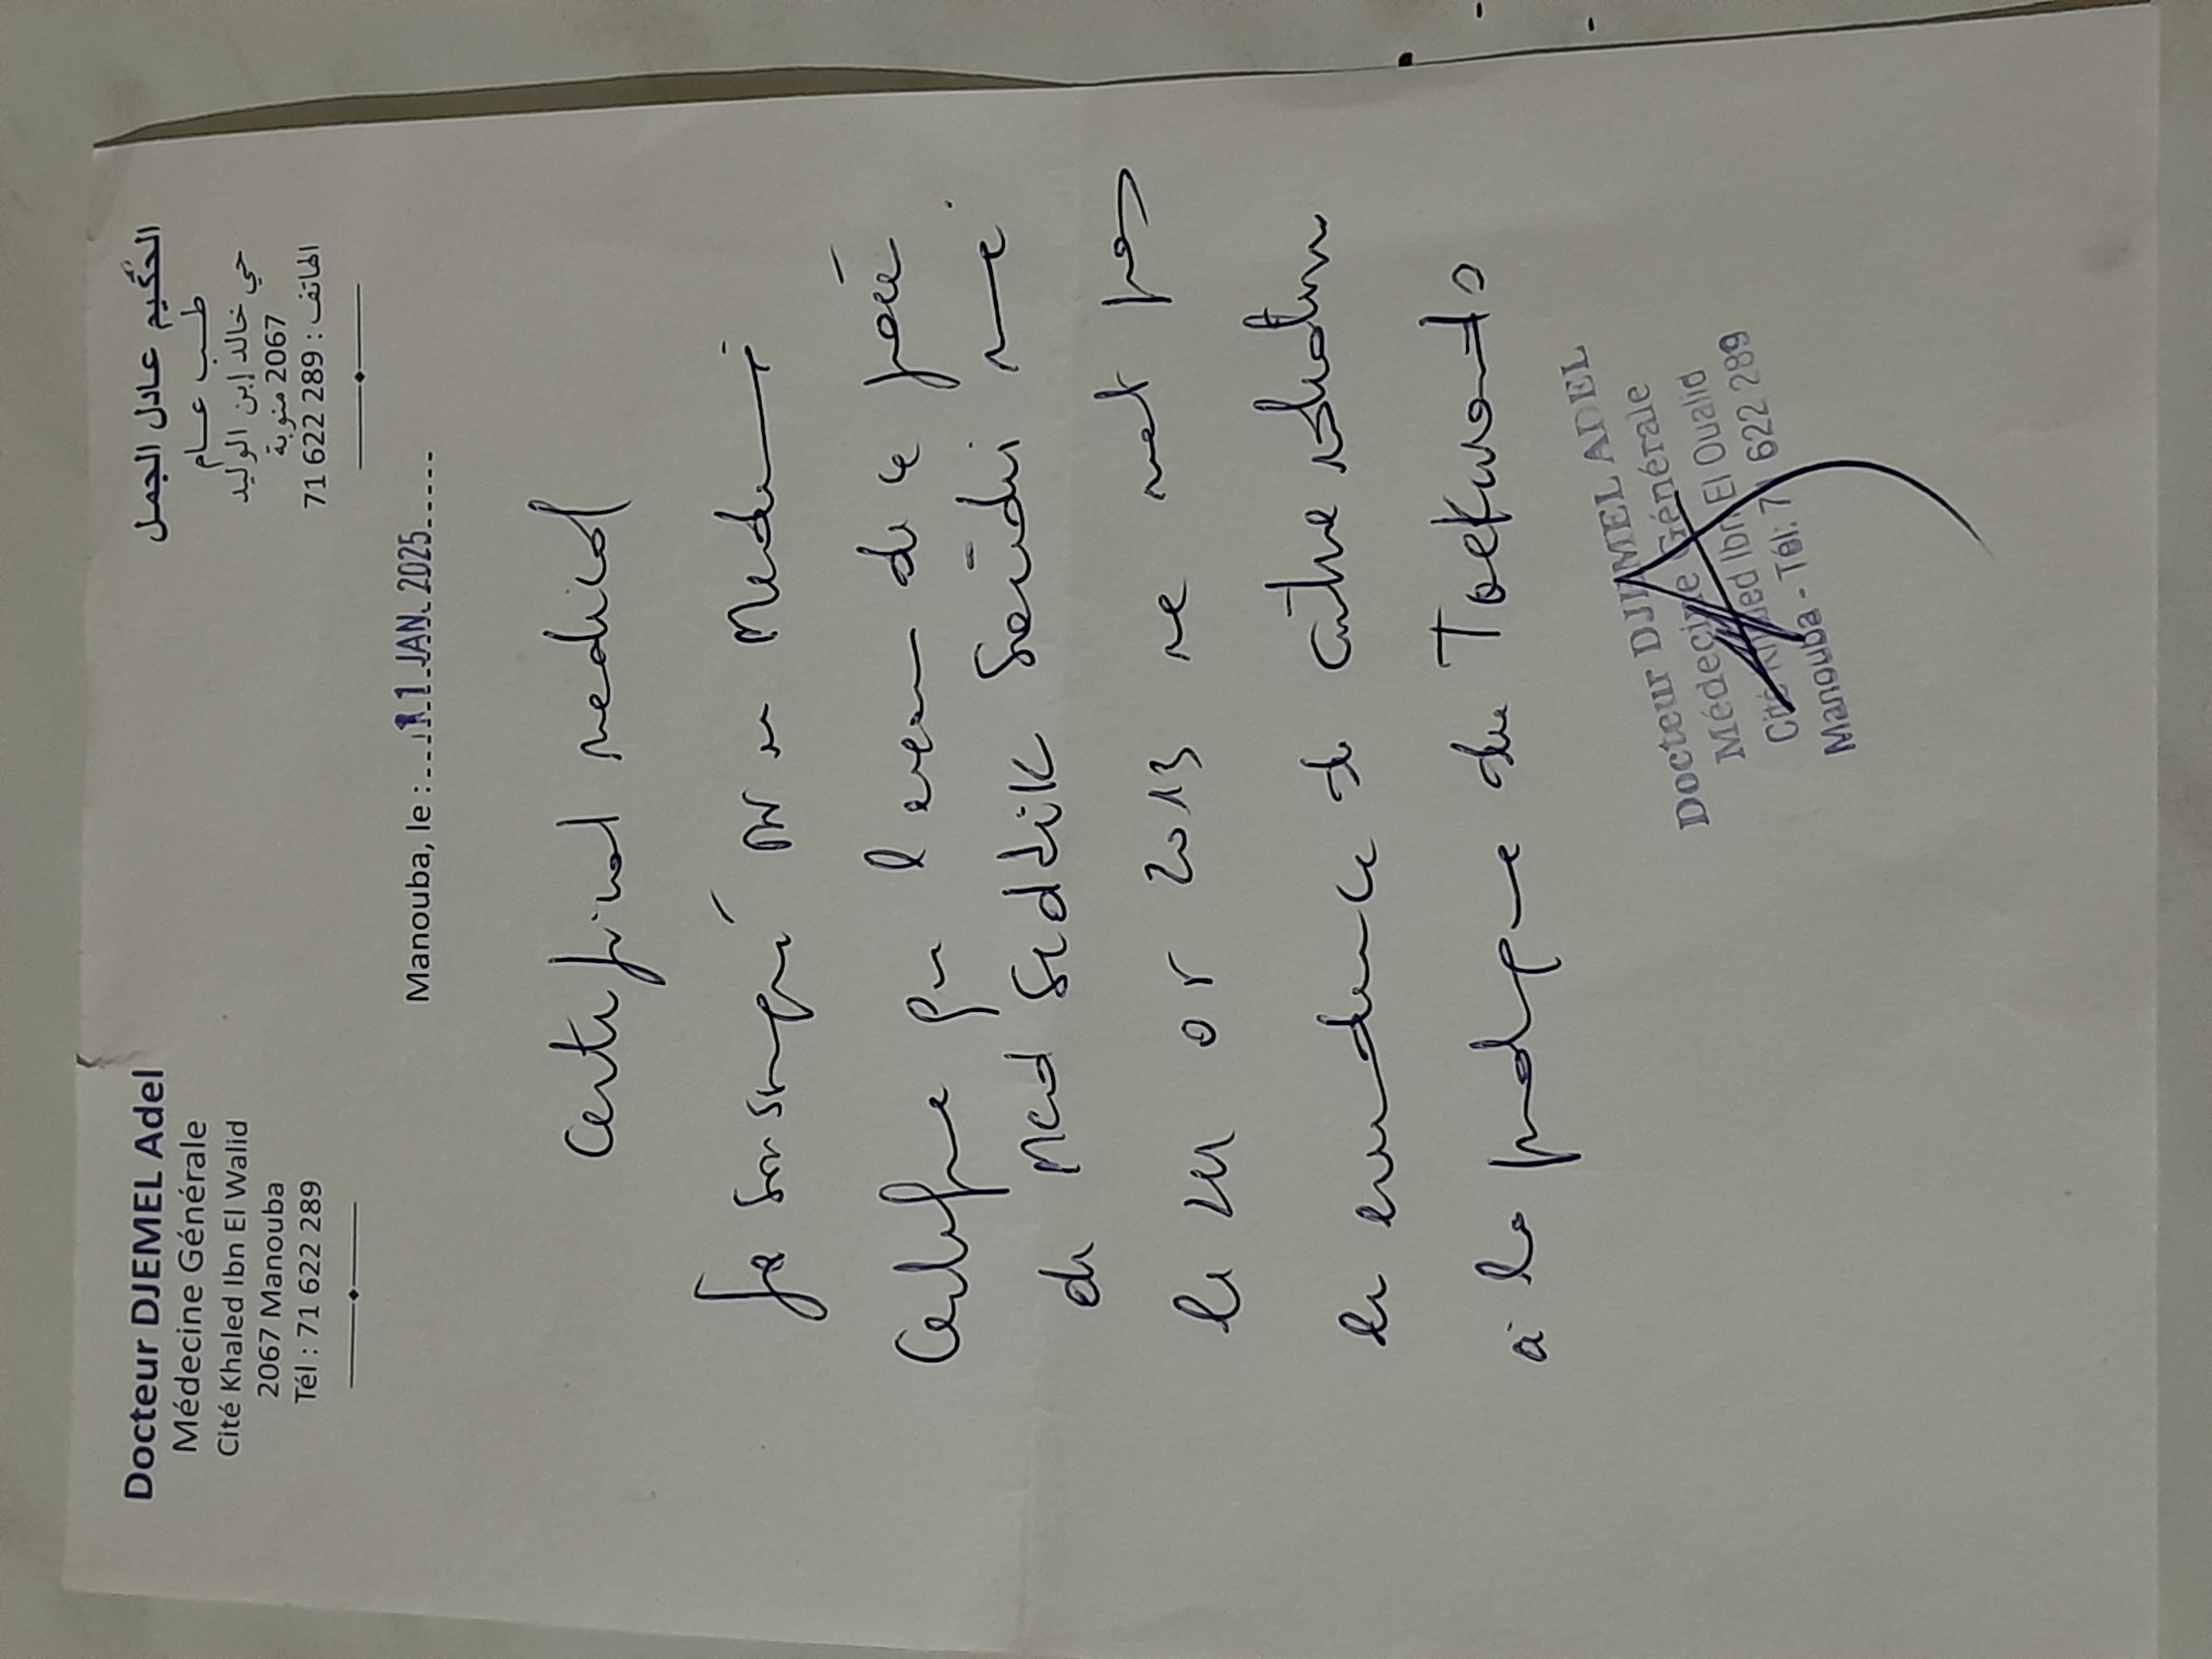 Docteur DJEMEL Adel
Médecine Générale
Cité Khaled Ibn El Walid
2067 Manouba
Tél : 71 622 289
الحكيم عادل الجمل
طب عام
حي خالد إبن الوليد
2067 منوبة
الهاتف : 71 622 289
Manouba, le : 11 JAN. 2025
Certificat medical
Je soussigné Dr en Medecine
Certifie que l'examen de ce jour
de Med Seddik Saidi né
le 2013 ne met pas
en evidence de contre indication
à la pratique du Taekwondo
Docteur DJEMEL ADEL
Médecine Générale
Cité Khaled Ibn El Oualid
Manouba - Tél: 71 622 289